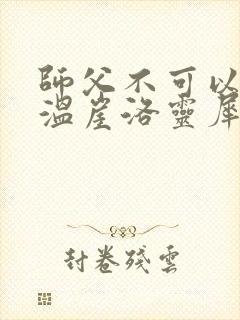 師父不可以
溫崖洛靈犀
封卷殘雲